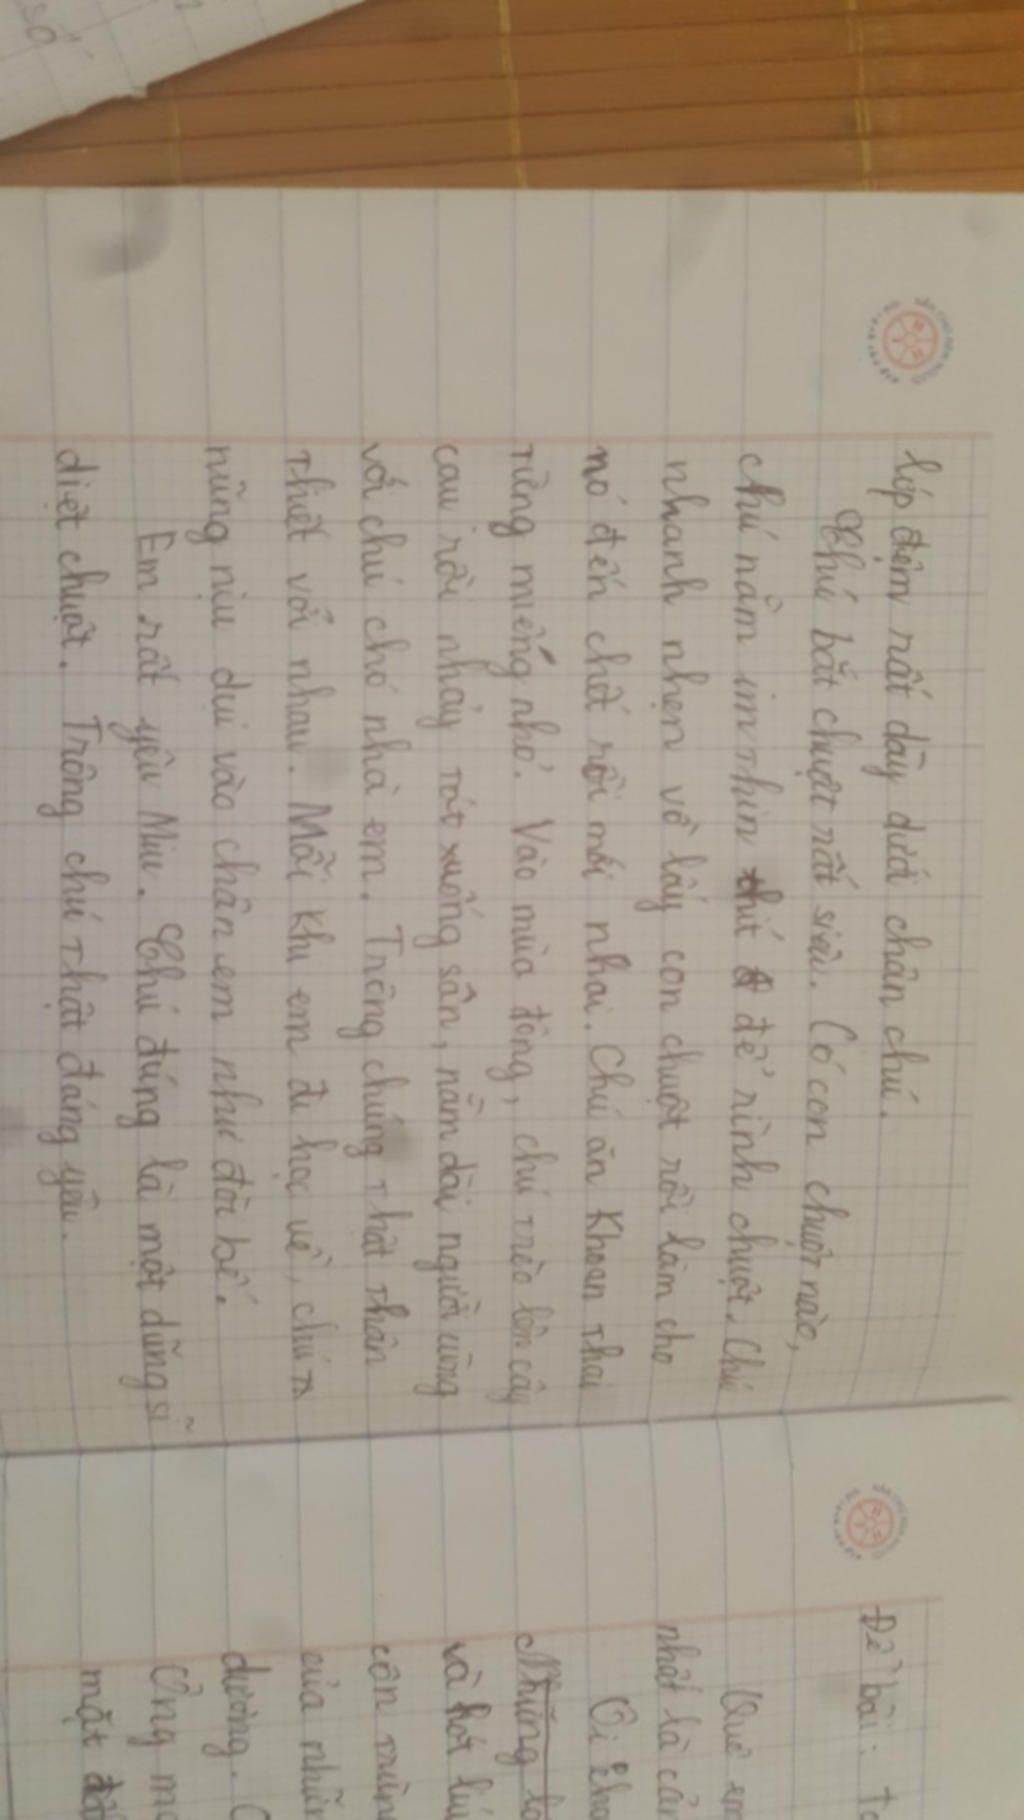 lớp đệm rất dày dưới chân chú.
Chú bắt chuột rất siêu. Có con chuột nào,
chú nằm im thin thít để rình chuột. Chú
nhanh nhẹn vồ lấy con chuột rồi làm cho
nó đến chết rồi mới nhai. Chú ăn khoan thai
từng miếng nhỏ. Vào mùa đông, chú trèo lên cây
cau rồi nhảy tót xuống sân, nằm dài người cùng
với chú chó nhà em. Trông chúng thật thân
thiết với nhau. Mỗi khi em đi học về, chú ta
nũng nịu dụi vào chân em như đòi bế.
Em rất yêu Miu. Chú đúng là một dũng sĩ
diệt chuột. Trông chú thật đáng yêu.
Đề bài: tả
Quê em
nhất là cản
Ôi
Những
và hót
côn trùng
của những
dường.
Ông
mặt
số